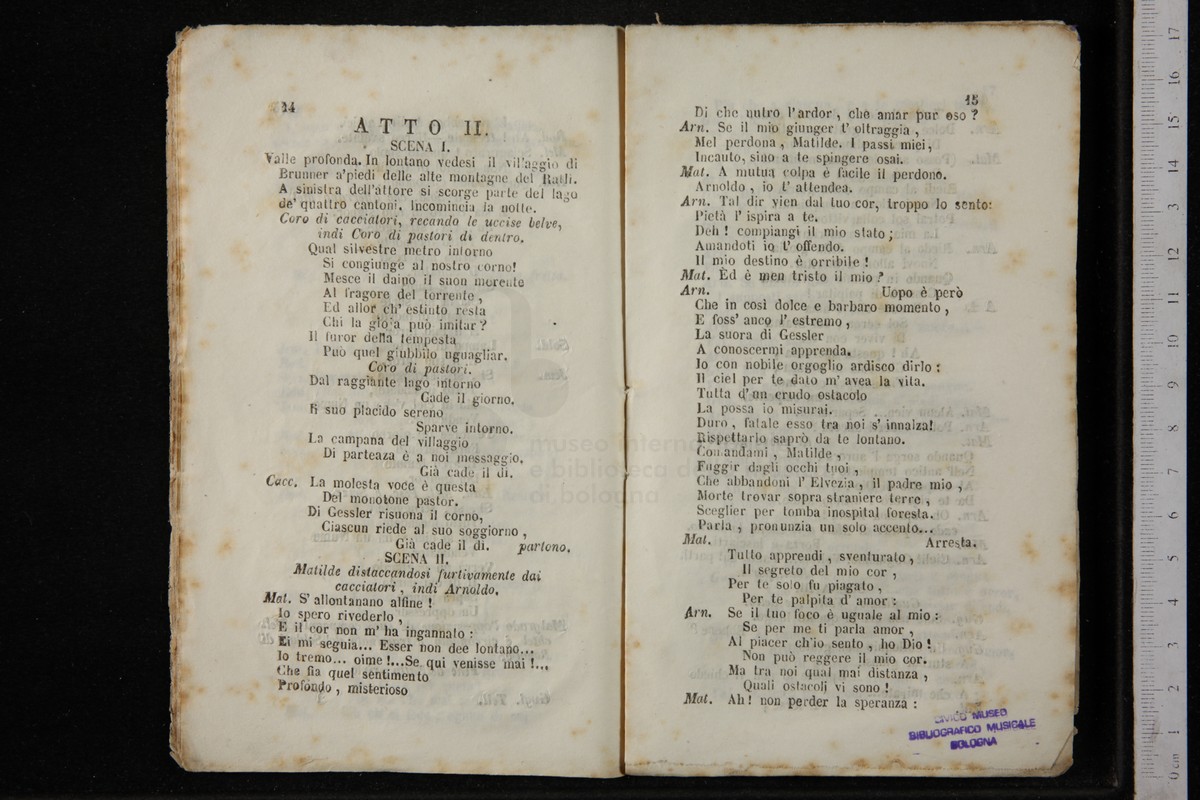 14
ATTO II.
SCENA I.
Valle profonda. In lontano vedesi il villaggio di
Brunner a'piedi delle alte montagne del Rutli.
A sinistra dell'attore si scorge parte del lago
de' quattro cantoni. Incomincia la notte.
Coro di cacciatori, recando le uccise belve,
indi Coro di pastori di dentro.
Qual silvestre metro intorno
Si congiunge al nostro corno!
Mesce il daino il suon morente
Al fragore del torrente,
Ed allor ch' estinto resta
Chi la gioia può imitar?
Il furor della tempesta
Può quel giubbilo uguagliar.
Coro di pastori.
Dal raggiante lago intorno
Cade il giorno.
Il suo placido sereno
Sparve intorno.
La campana del villaggio
Di parteaza è a noi messaggio.
Già cade il dì.
Cacc. La molesta voce è questa
Del monotone pastor.
Di Gessler risuona il corno,
Ciascun riede al suo soggiorno,
Già cade il dì. partono.
SCENA II.
Matilde distaccandosi furtivamente dai
cacciatori, indi Arnoldo.
Mat. S' allontanano alfine!
Io spero rivederlo,
E il cor non m' ha ingannato:
Ei mi seguia... Esser non dee lontano...
Io tremo... oime!...Se qui venisse mai!...
Che fia quel sentimento
Profondo, misterioso
15
Di che nutro l'ardor, che amar pur oso?
Arn. Se il mio giunger t' oltraggia,
Mel perdona, Matilde. I passi miei,
Incauto, sino a te spingere osai.
Mat. A mutua colpa è facile il perdono.
Arnoldo, io t' attendea.
Arn. Tal dir vien dal tuo cor, troppo lo sento:
Pietà l' ispira a te.
Deh! compiangi il mio stato;
Amandoti io t' offendo.
Il mio destino è orribile!
Mat. Ed è men tristo il mio?
Arn. Uopo è però
Che in così dolce e barbaro momento,
E foss' anco l' estremo,
La suora di Gessler
A conoscermi apprenda.
Io con nobile orgoglio ardisco dirlo:
Il ciel per te dato m' avea la vita.
Tutta d'un crudo ostacolo
La possa io misurai.
Duro, fatale esso tra noi s' innalza!
Rispettarlo saprò da te lontano.
Comandami, Matilde,
Fuggir dagli occhi tuoi,
Che abbandoni l' Elvezia, il padre mio,
Morte trovar sopra straniere terre,
Sceglier per tomba inospital foresta.
Parla, pronunzia un solo accento...
Mat. Arresta.
Tutto apprendi, sventurato,
Il segreto del mio cor,
Per te solo fu piagato,
Per te palpita d' amor:
Arn. Se il tuo foco è uguale al mio:
Se per me ti parla amor,
Al piacer ch'io sento, ho Dio!
Non può reggere il mio cor.
Ma tra noi qual mai distanza,
Quali ostacoli vi sono!
Mat. Ah! non perder la speranza:
CIVICO MUSEO
BIBLIOGRAFICO MUSICALE
BOLOGNA